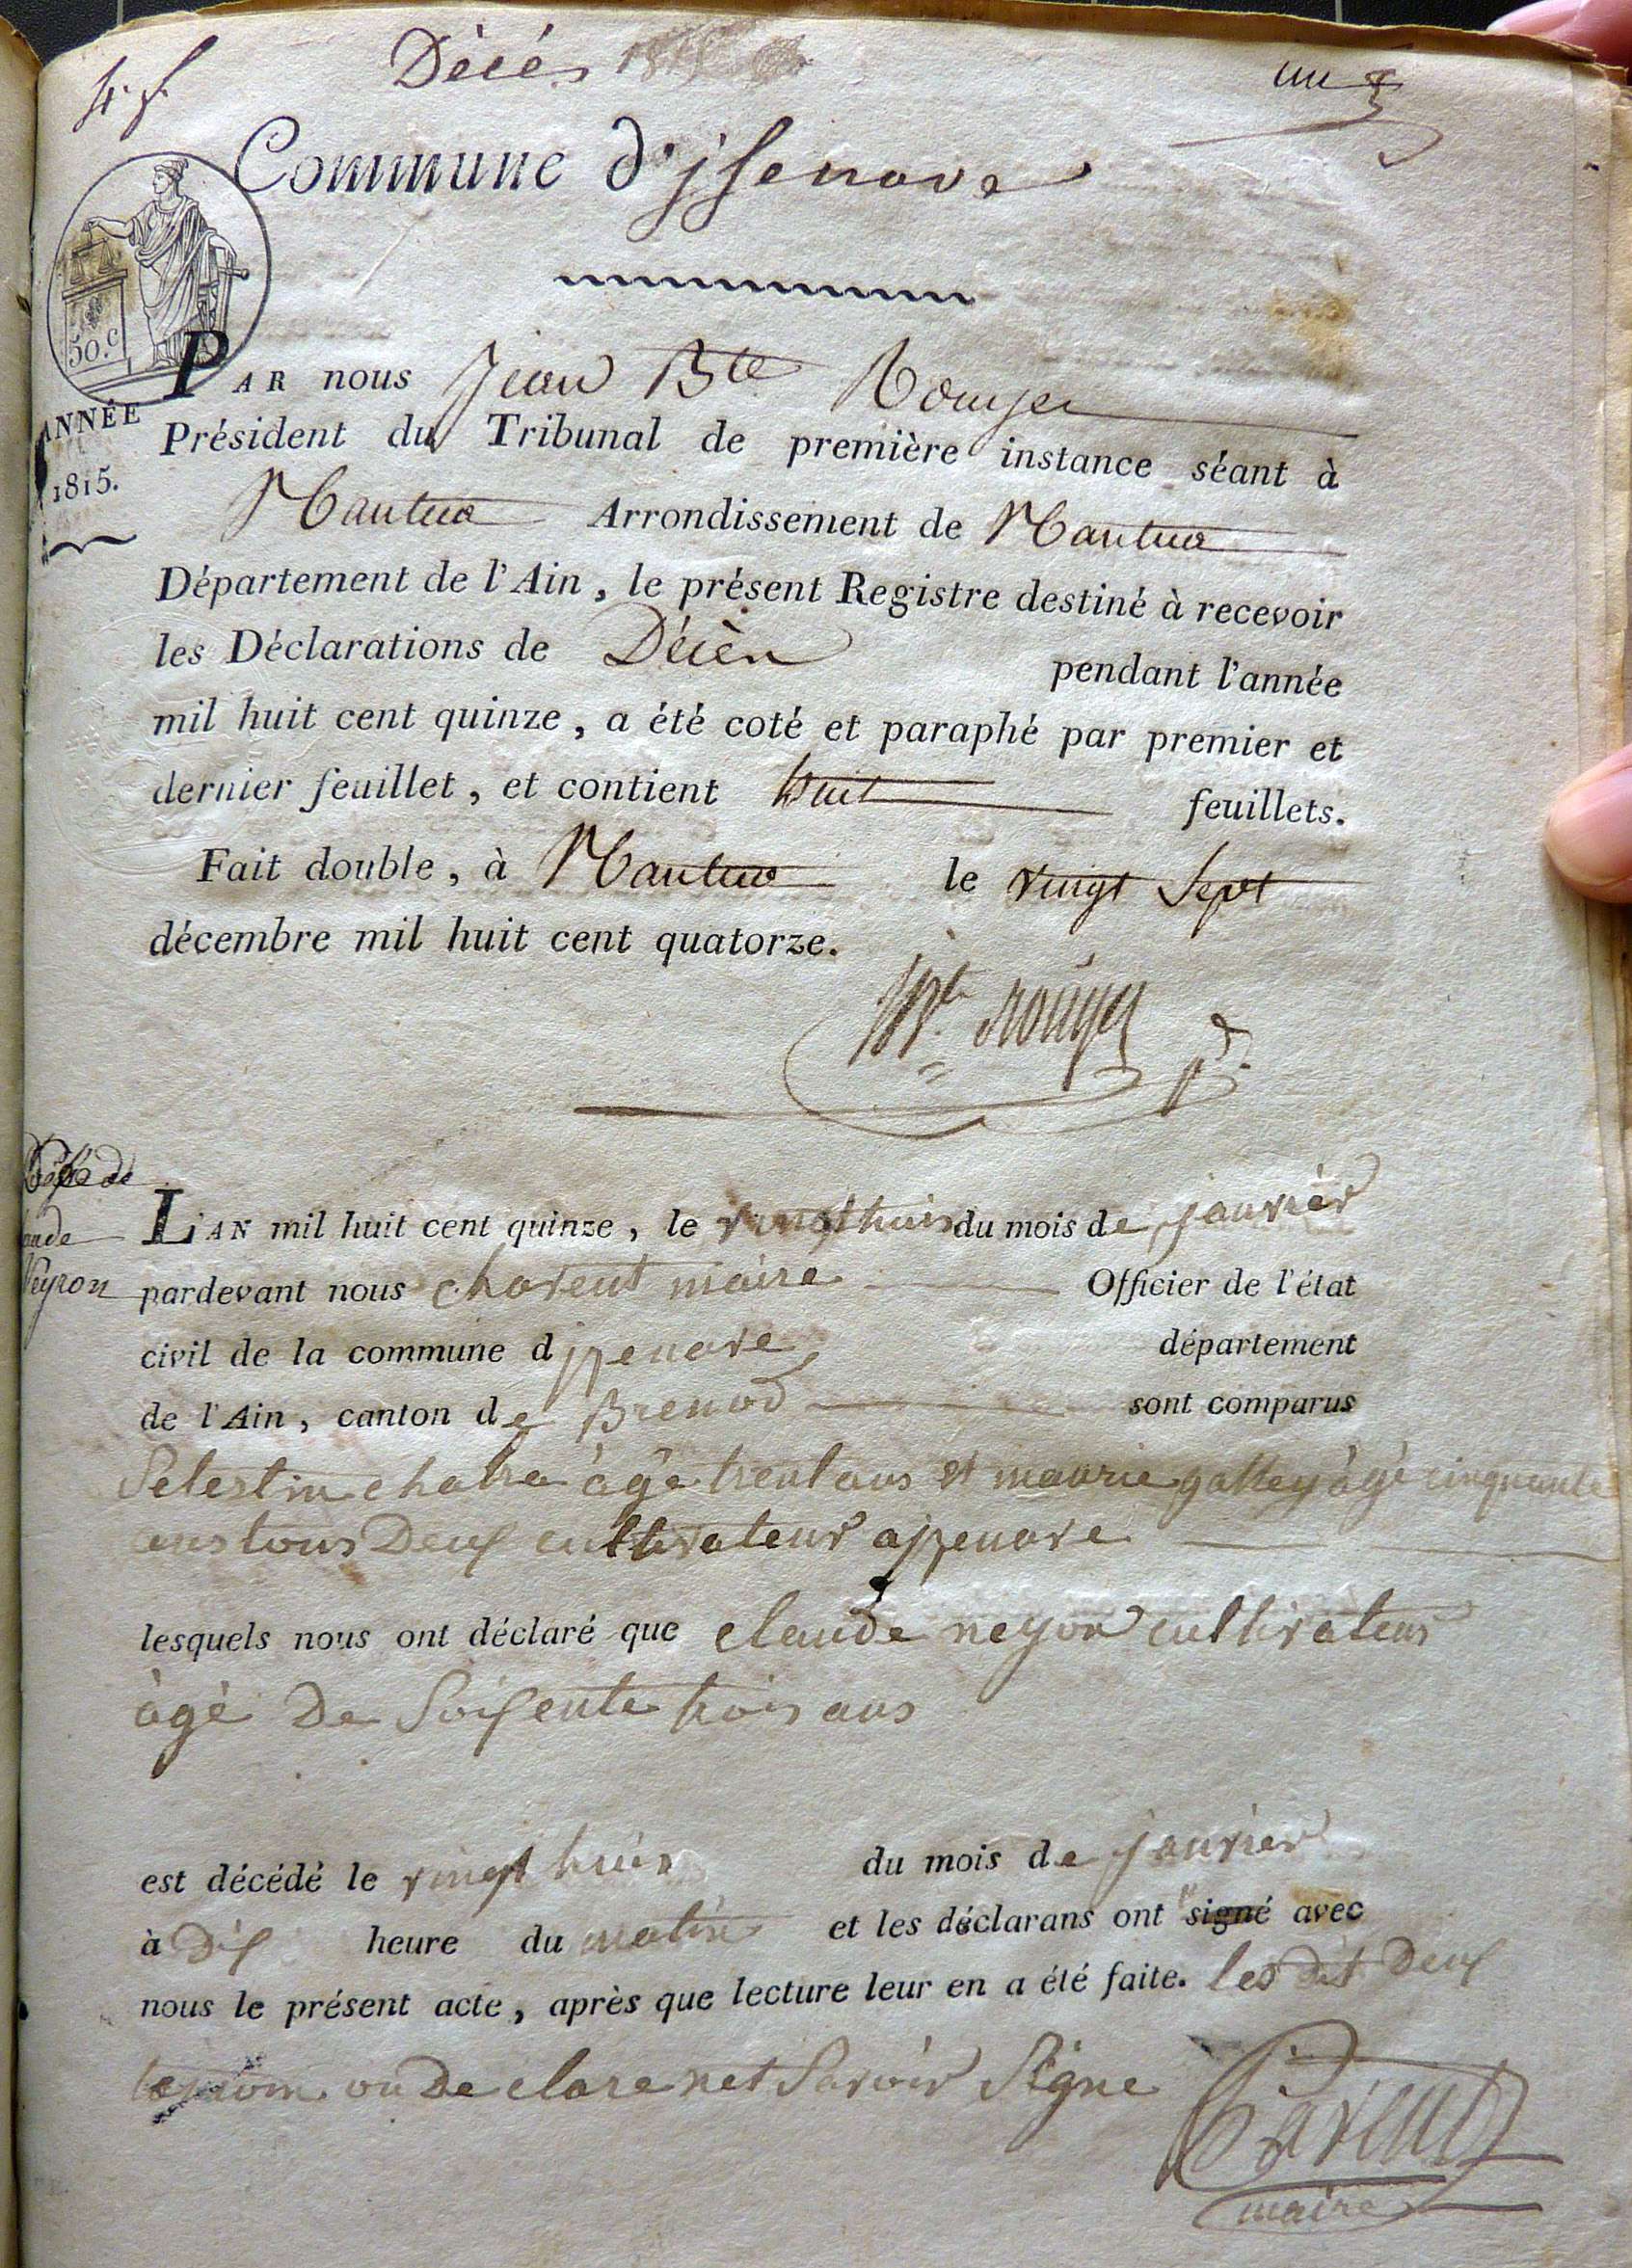 4. f.
Décés 1815
un
Commune d'jsenave
50.c
ANNÉE
1815.
PAR nous Jean Bte Rouyer
Président du Tribunal de première instance séant à
Nantua Arrondissement de Nantua
Département de l'Ain, le présent Registre destiné à recevoir
les Déclarations de Décès pendant l'année
mil huit cent quinze, a été coté et paraphé par premier et
dernier feuillet, et contient huit feuillets.
Fait double, à Nantua le vingt Sept
décembre mil huit cent quatorze.
Bte rouyer
de
aude
Neyron
L'AN mil huit cent quinze, le vingt huis du mois de janvier
pardevant nous chavent maire Officier de l'état
civil de la commune d jzenave département
de l'Ain, canton de Brenod sont comparus
Selestin chatra àgé trent ans et maurie galley àgé cinquante
ans tous Deux cultivateur a jzenave
lesquels nous ont déclaré que claude neyron cultivateur
àgé De Soisente trois ans
est décédé le vingt huis du mois de janvier
à Dix heure du matin et les déclarans ont signé avec
nous le présent acte, après que lecture leur en a été faite. les dit Deux
on De clare net Savoir Signe
Chavent
maire